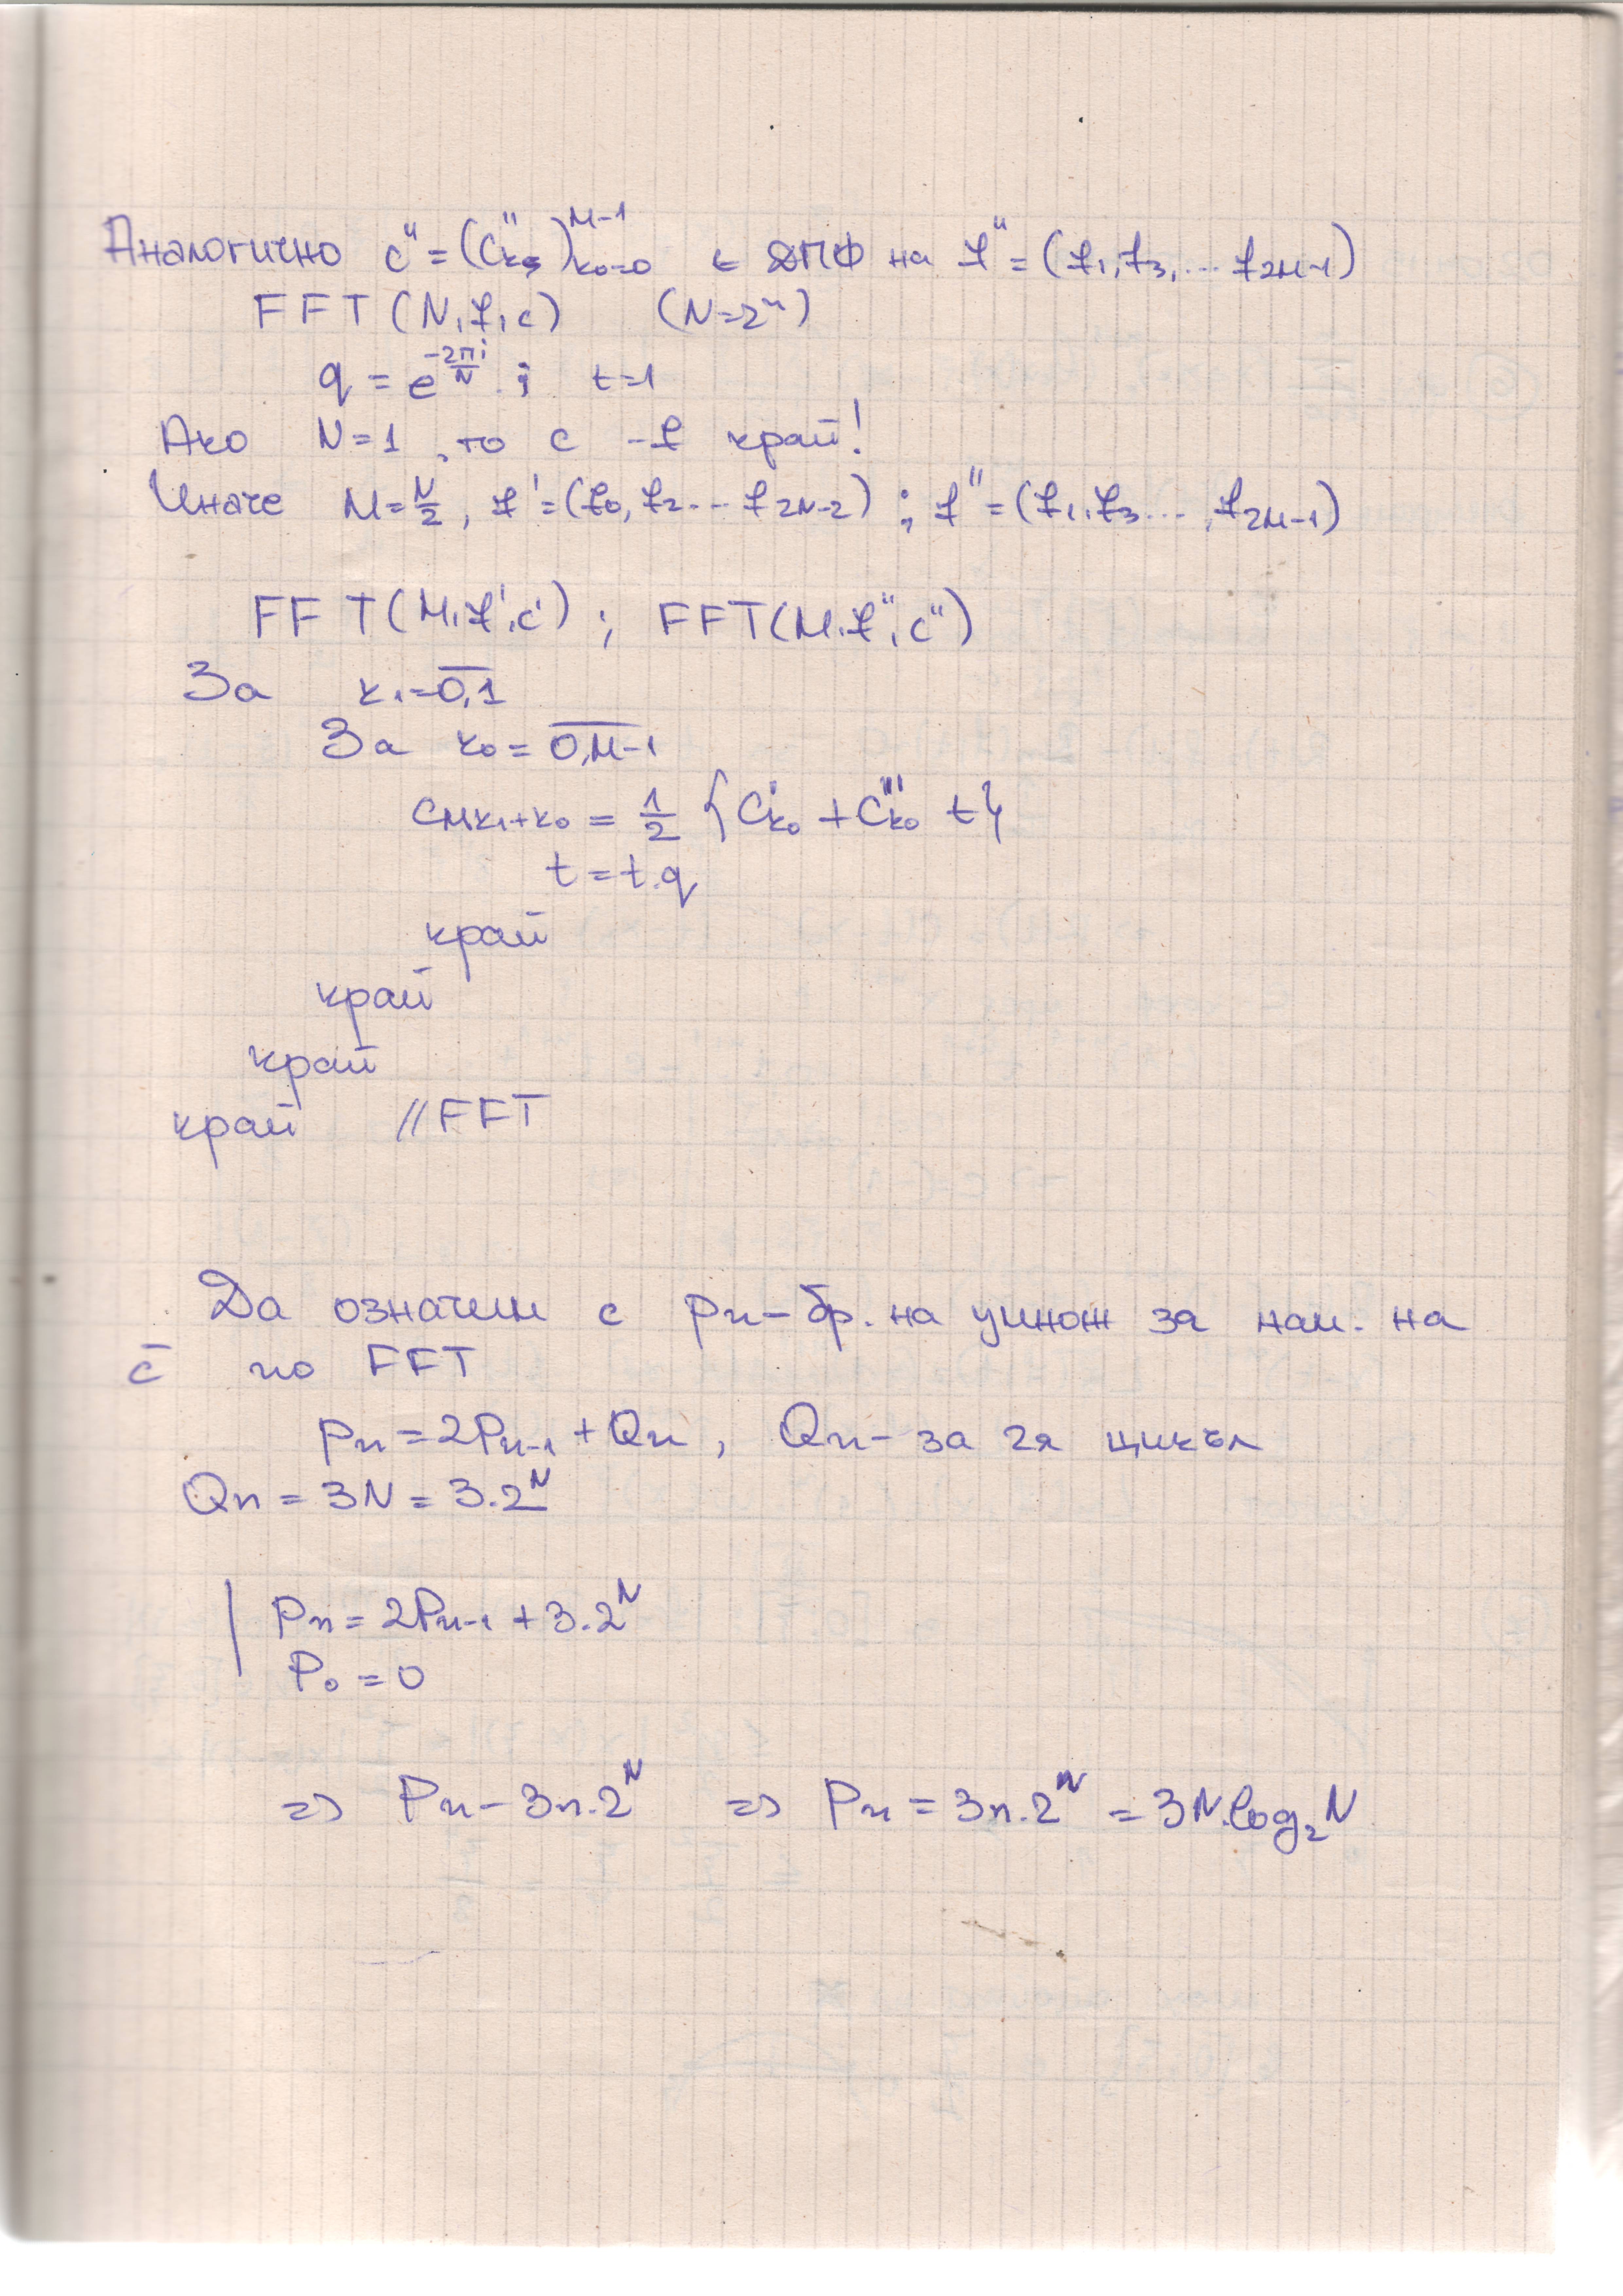 Аналогично c" = (c"k₀)ᴹ⁻¹k₀=0 е ДПФ на f" = (f₁, f₃, ... f₂M-1)
FFT (N, f, c) (N=2ⁿ)
q = e^(-2πi/N) ; t=1
Ако N=1, то c - f край!
Иначе M = N/2, f' = (f₀, f₂ ... f₂N-2) ; f" = (f₁, f₃ ... , f₂M-1)
FFT (M, f', c') ; FFT (M, f", c")
За k₁ = 0,1
За k₀ = 0,M-1
cMk₁+k₀ = 1/2 { c'k₀ + c"k₀ t }
t = t.q
край
край
край
край // FFT
Да означим с Pn - бр. на умнож за нам. на
c̄ по FFT
Pn = 2Pn-1 + Qn , Qn - за 2я цикъл
Qn = 3N = 3.2ᴺ
Pn = 2Pn-1 + 3.2ᴺ
P₀ = 0
=> Pn - 3n.2ᴺ => Pn = 3n.2ᴺ = 3N.log₂N